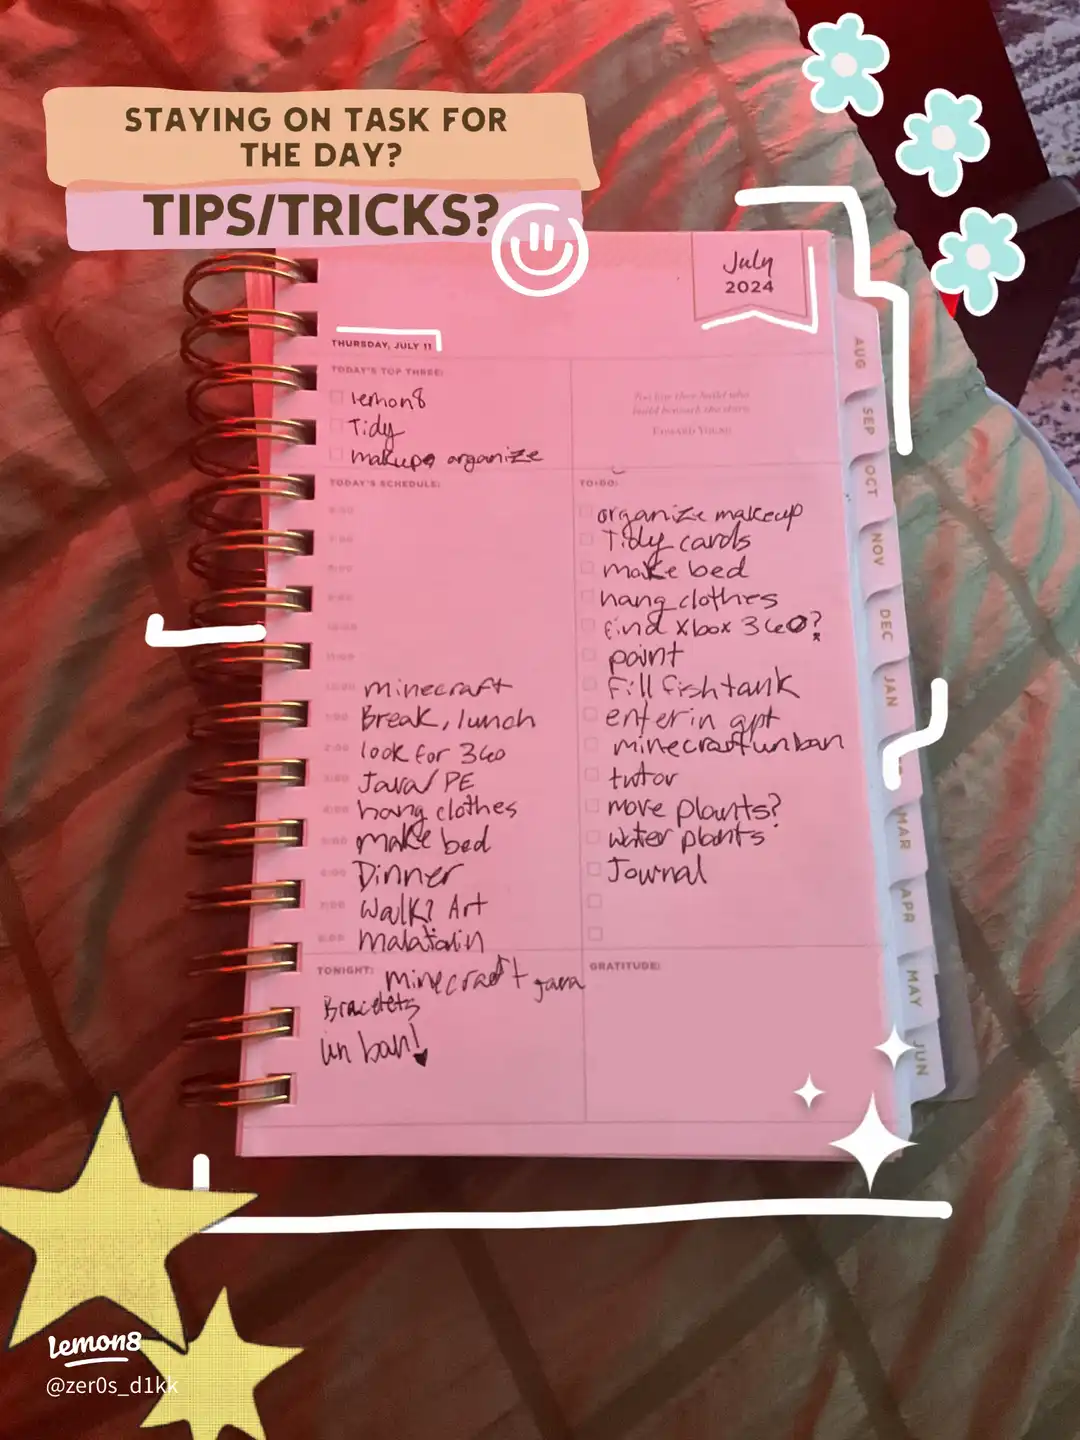 STAYING ON TASK FOR
THE DAY?
TIPS/TRICKS?
July
2024
THURSDAY, JULY 11
TODAY'S TOP THREE:
lemon8
Tidy
makeup organize
TODAY'S SCHEDULE:
6:00
7:00
8:00
9:00
10:00
11:00
12:00 minecraft
1:00 Break, lunch
2:00 look for 360
3:00 Java/PE
4:00 hang clothes
5:00 make bed
6:00 Dinner
7:00 Walk? Art
8:00
TO-DO:
organize makeup
Tidy cards
make bed
hang clothes
find xbox 360?
paint
fill fishtank
enter in gpt
minecraft unban
tutor
move plants?
water plants
Journal
TONIGHT: minecraft
Bracelets
un ban!
GRATITUDE:
AUG
SEP
OCT
NOV
DEC
JAN
MAR
APR
MAY
JUN
lemon8
@zer0s_d1kk